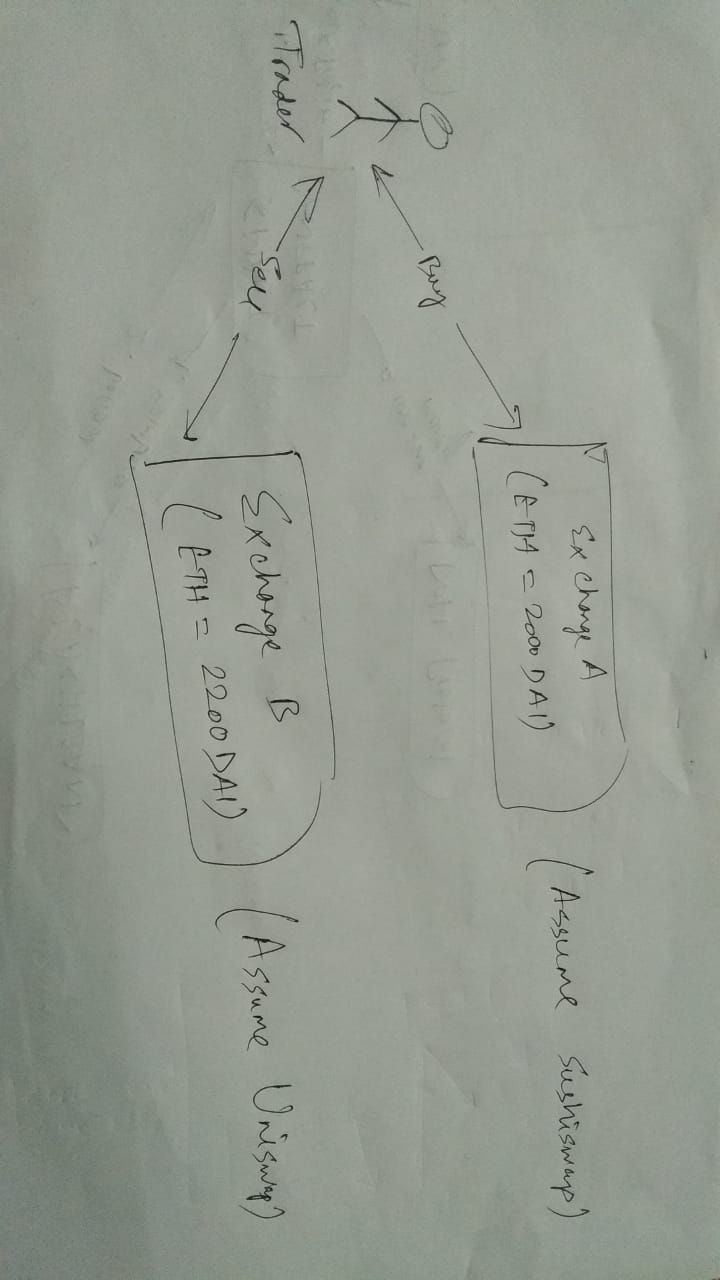 Exchange A
(ETH = 2000 DAI)
(Assume Sushiswap)
Buy
Trader
Sell
Exchange B
(ETH = 2200 DAI)
(Assume Uniswap)